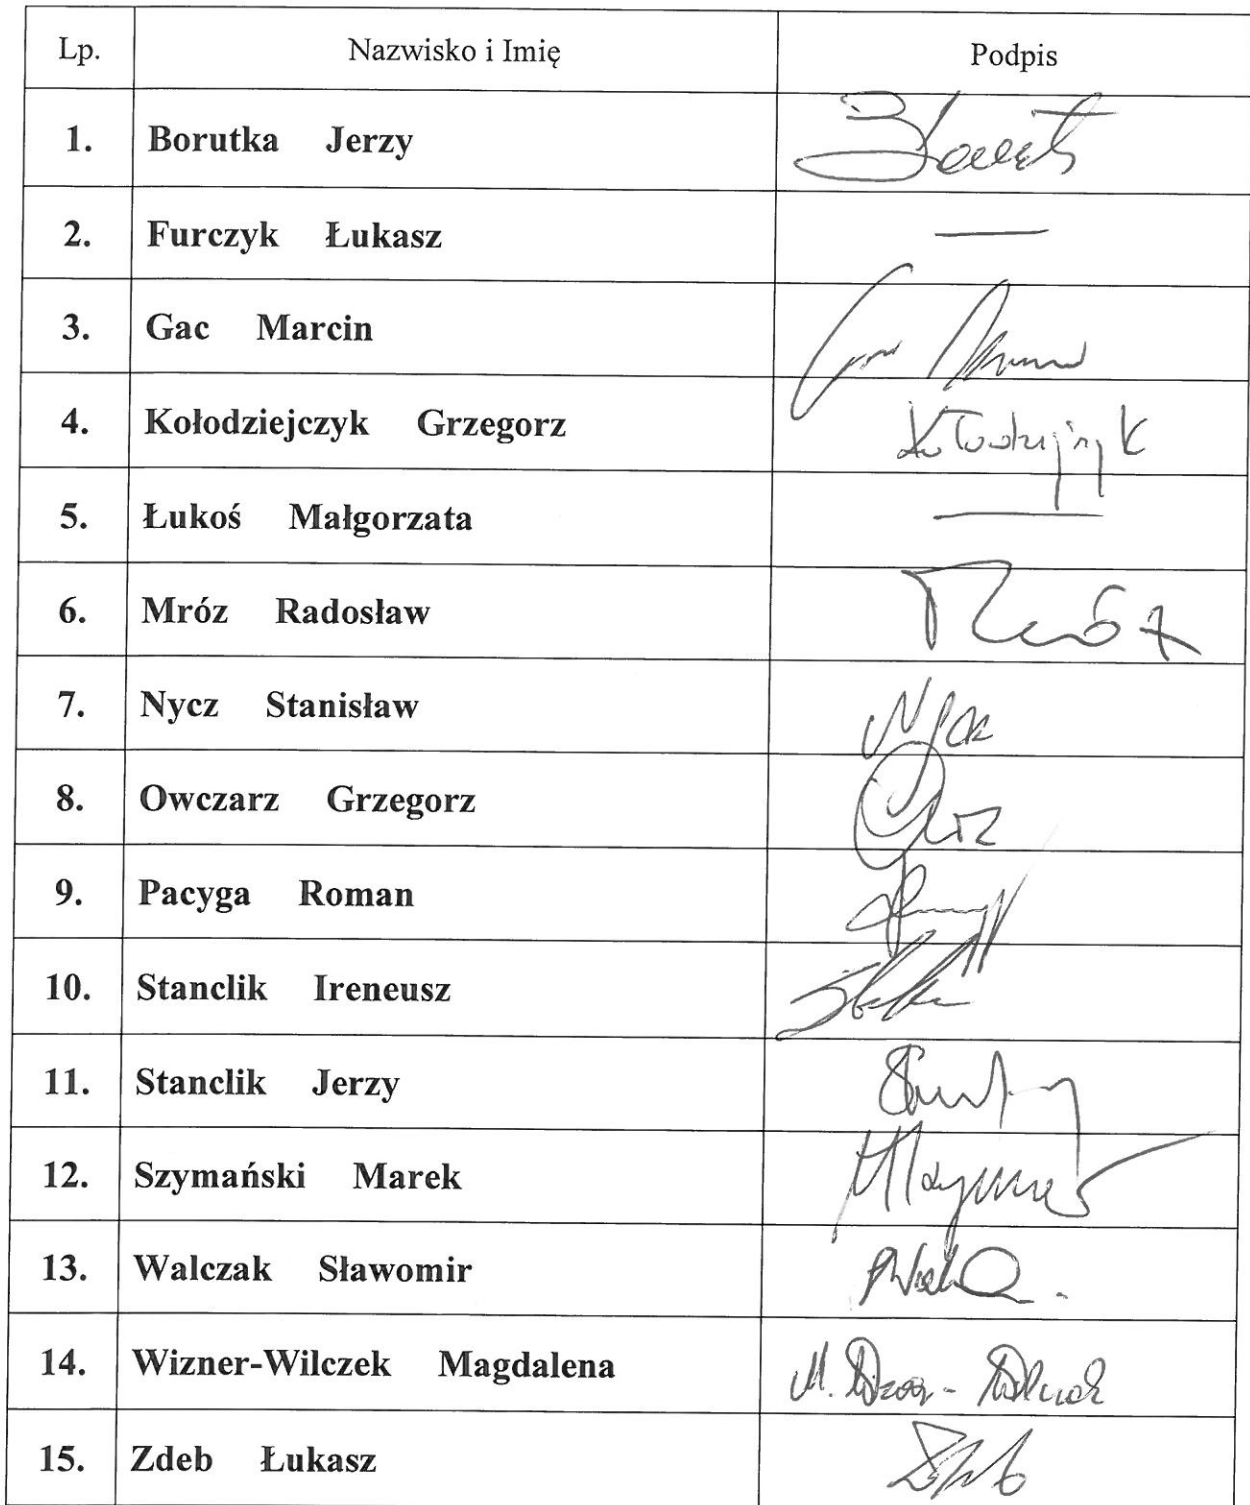 Lp. Nazwisko i Imię Podpis
1. Borutka Jerzy
2. Furczyk Łukasz —
3. Gac Marcin
4. Kołodziejczyk Grzegorz Kołodziejczyk
5. Łukoś Małgorzata —
6. Mróz Radosław Mróz
7. Nycz Stanisław Nycz
8. Owczarz Grzegorz
9. Pacyga Roman
10. Stanclik Ireneusz
11. Stanclik Jerzy
12. Szymański Marek
13. Walczak Sławomir
14. Wizner-Wilczek Magdalena M. Wizner-Wilczek
15. Zdeb Łukasz